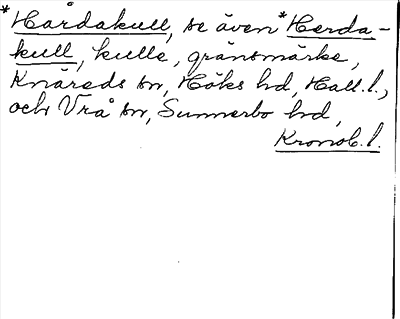 *Hårdakull, se även *Herda-
kull, kulle, gränsmärke,
Knäreds sn, Höks hd, Hall.l.,
och Vrå sn, Sunnerbo hd,
Kronob.l.